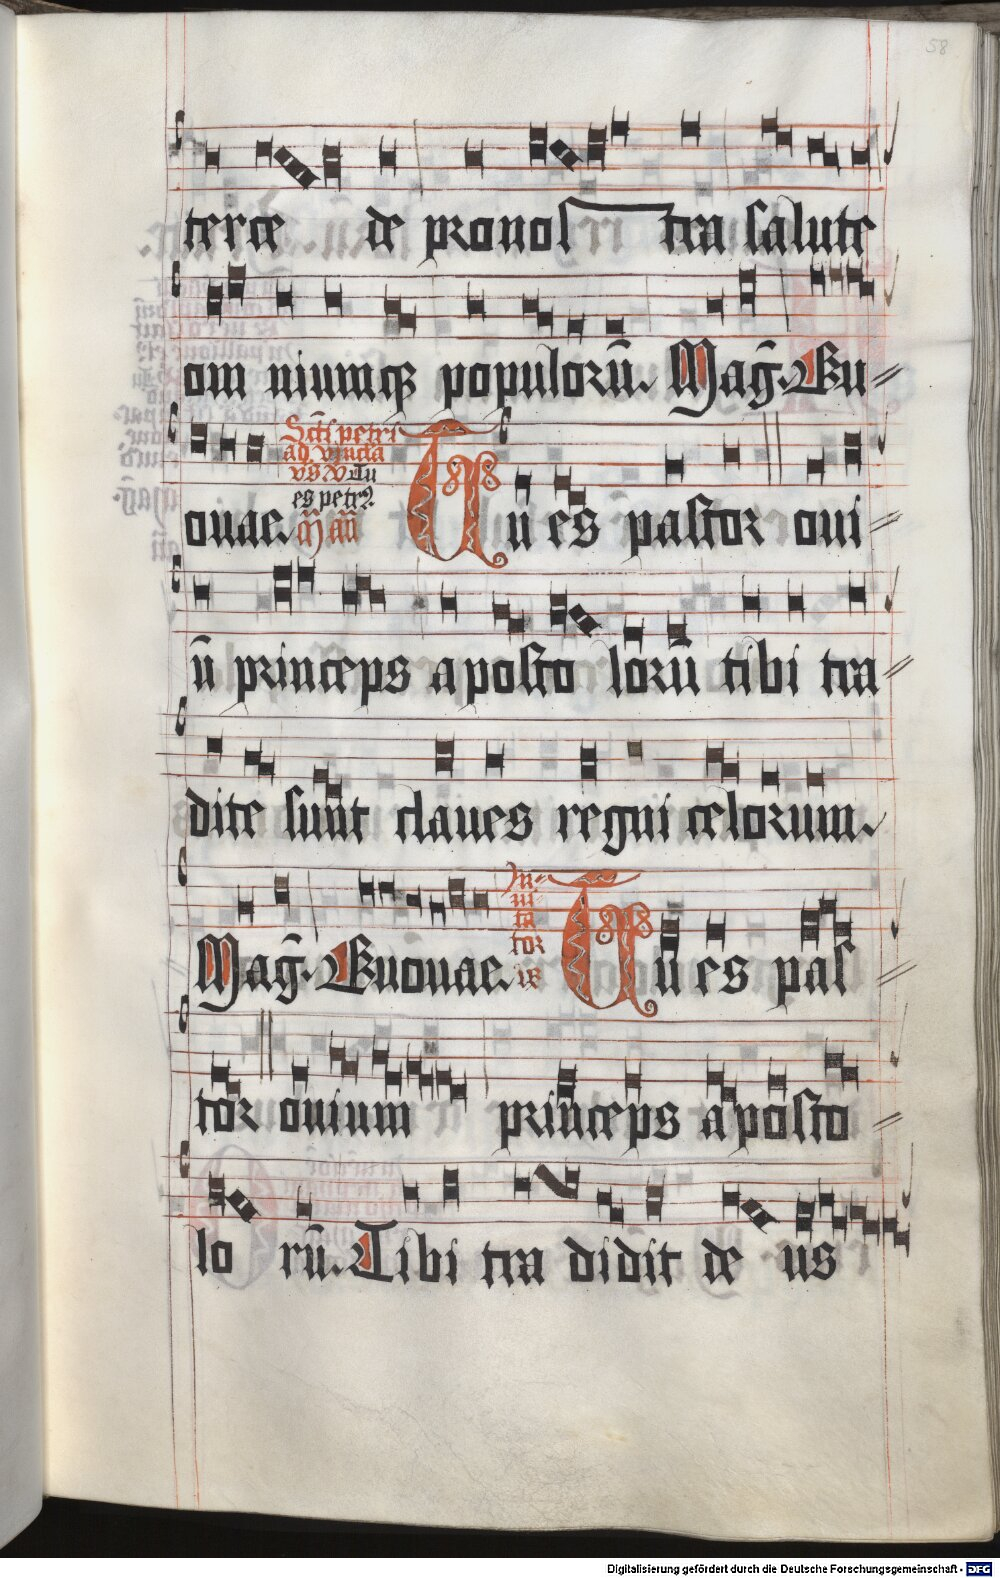 58
terce de pronos tra salute
om niumqꝫ populorū. Mag̃. Eu
ouae.
Scti petri
ad vincla
vs V Tu
es petrꝰ.
Tu es pastor oui
ū princeps aposto lorū tibi tra
dite sunt claues regni celorum.
Mag̃. Euouae.
In
ui
ta
tor
Tu es pas
tor ouium princeps aposto
lo rū. Tibi tra didit de us
Digitalisierung gefördert durch die Deutsche Forschungsgemeinschaft - DFG